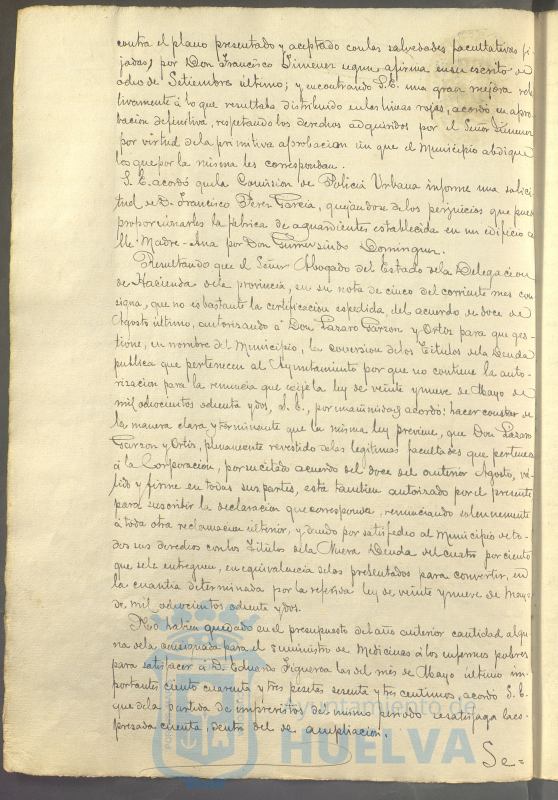 contra el plano presentado y aceptado con las salvedades facultativas fi-
jadas, por Don Francisco Jimenez segun afirma en su escrito de
ocho de Setiembre último; y encontrando S.E. una gran mejora rela-
tivamente á lo que resultaba distribuido en las lineas rojas, acordó su apro-
bacion definitiva, respetando los derechos adquiridos por el Señor Jimenez
por virtud de la primitiva aprobacion sin que el Municipio abdique
los que por la misma les correspondan.
S. E. acordó que la Comision de Policia Urbana informe una solici-
tud de D. Francisco Perez Garcia, quejandose de los perjuicios que puede
proporcionarles la fabrica de aguardientes establecida en un edificio ca-
lle Madre-Ana por Don Gumersindo Dominguez.
Resultando que el Señor Abogado del Estado de la Delegacion
de Hacienda de la provincia, en su nota de cinco del corriente mes con-
signa, que no es bastante la certificacion espedida, del acuerdo de doce de
Agosto último, autorizando á Don Lazaro Garzon y Ortiz para que ges-
tione, en nombre del Municipio, la conversion de los Titulos de la Deuda
publica que pertenecen al Ayuntamiento por que no contiene la auto-
rizacion para la renuncia que exije la ley de veinte y nueve de Mayo de
mil ochocientos ochenta y dos, S. E., por unanimidad acordó: hacer constar de
la manera clara y terminante que la misma ley previene, que Don Lazaro
Garzon y Ortiz, plenamente revestido de las legitimas facultades que pertenecen
á la Corporacion, por su citado acuerdo del doce del anterior Agosto, vá-
lido y firme en todas sus partes, está tambien autorizado por el presente
para suscribir la declaracion que corresponda, renunciando solemnemente
á toda otra reclamacion ulterior, y dando por satisfecho al Municipio de to-
dos sus derechos con los Titulos de la Nueva Deuda del cuatro por ciento
que se le entreguen, en equivalencia de los presentados para convertir, en
la cuantia determinada por la referida ley de veinte y nueve de Mayo
de mil ochocientos ochenta y dos.
No habiendo quedado en el presupuesto del año anterior cantidad algu-
na de la consignada para el suministro de Medicinas á los enfermos pobres
para satisfacer á D. Eduardo Figueroa las del mes de Mayo último im-
portantes ciento cuarenta y tres pesetas sesenta y tres centimos, acordó S. E.
que de la partida de imprevistos del mismo periodo se satisfaga la es-
presada cuenta, dentro del de ampliacion.
Se=
Ayuntamiento de
HUELVA